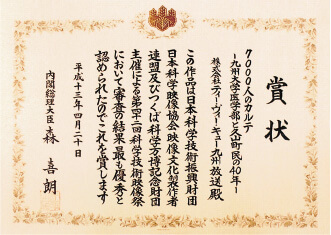 賞状
7000人のカルテ
－九州大学医学部と久山町民の40年－
株式会社ティー・ヴィー・キュー九州放送殿
この作品は日本科学技術振興財団
日本科学映像協会映像文化製作者
連盟及びつくば科学万博記念財団
主催による第四十二回科学技術映像祭
において審査の結果最も優秀と
認められたのでこれを賞します
平成十三年四月二十日
内閣総理大臣 森 喜朗